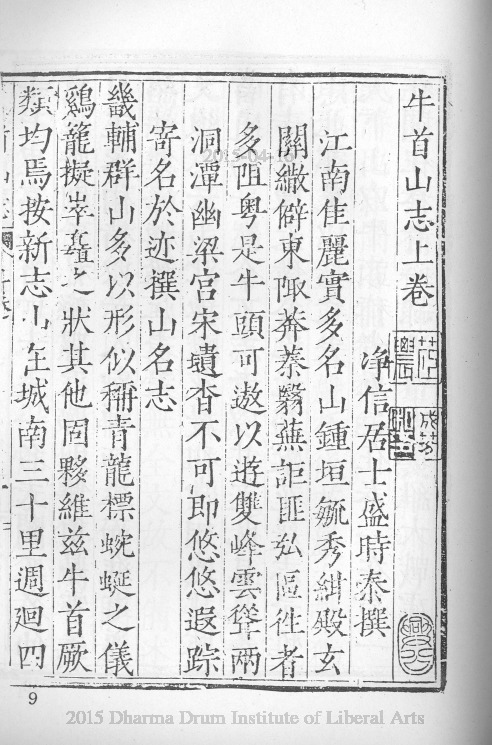 牛首山志上卷
淨信居士盛時泰撰
江南佳麗實多名山鍾垣毓秀紺殿玄
關繖僻東陬莽蓁翳蕪詎匪弘區徃者
多阻粤是牛頭可遨以遊雙峰雲聳兩
洞潭幽梁宫宋遺杳不可即悠悠遐踪
寄名於迹撰山名志
畿輔群山多以形似稱青龍標蜿蜒之儀
鷄籠擬崒嵂之狀其他固夥維兹牛首厥
類均焉按新志山在城南三十里週迴四
9
2015 Dharma Drum Institute of Liberal Arts